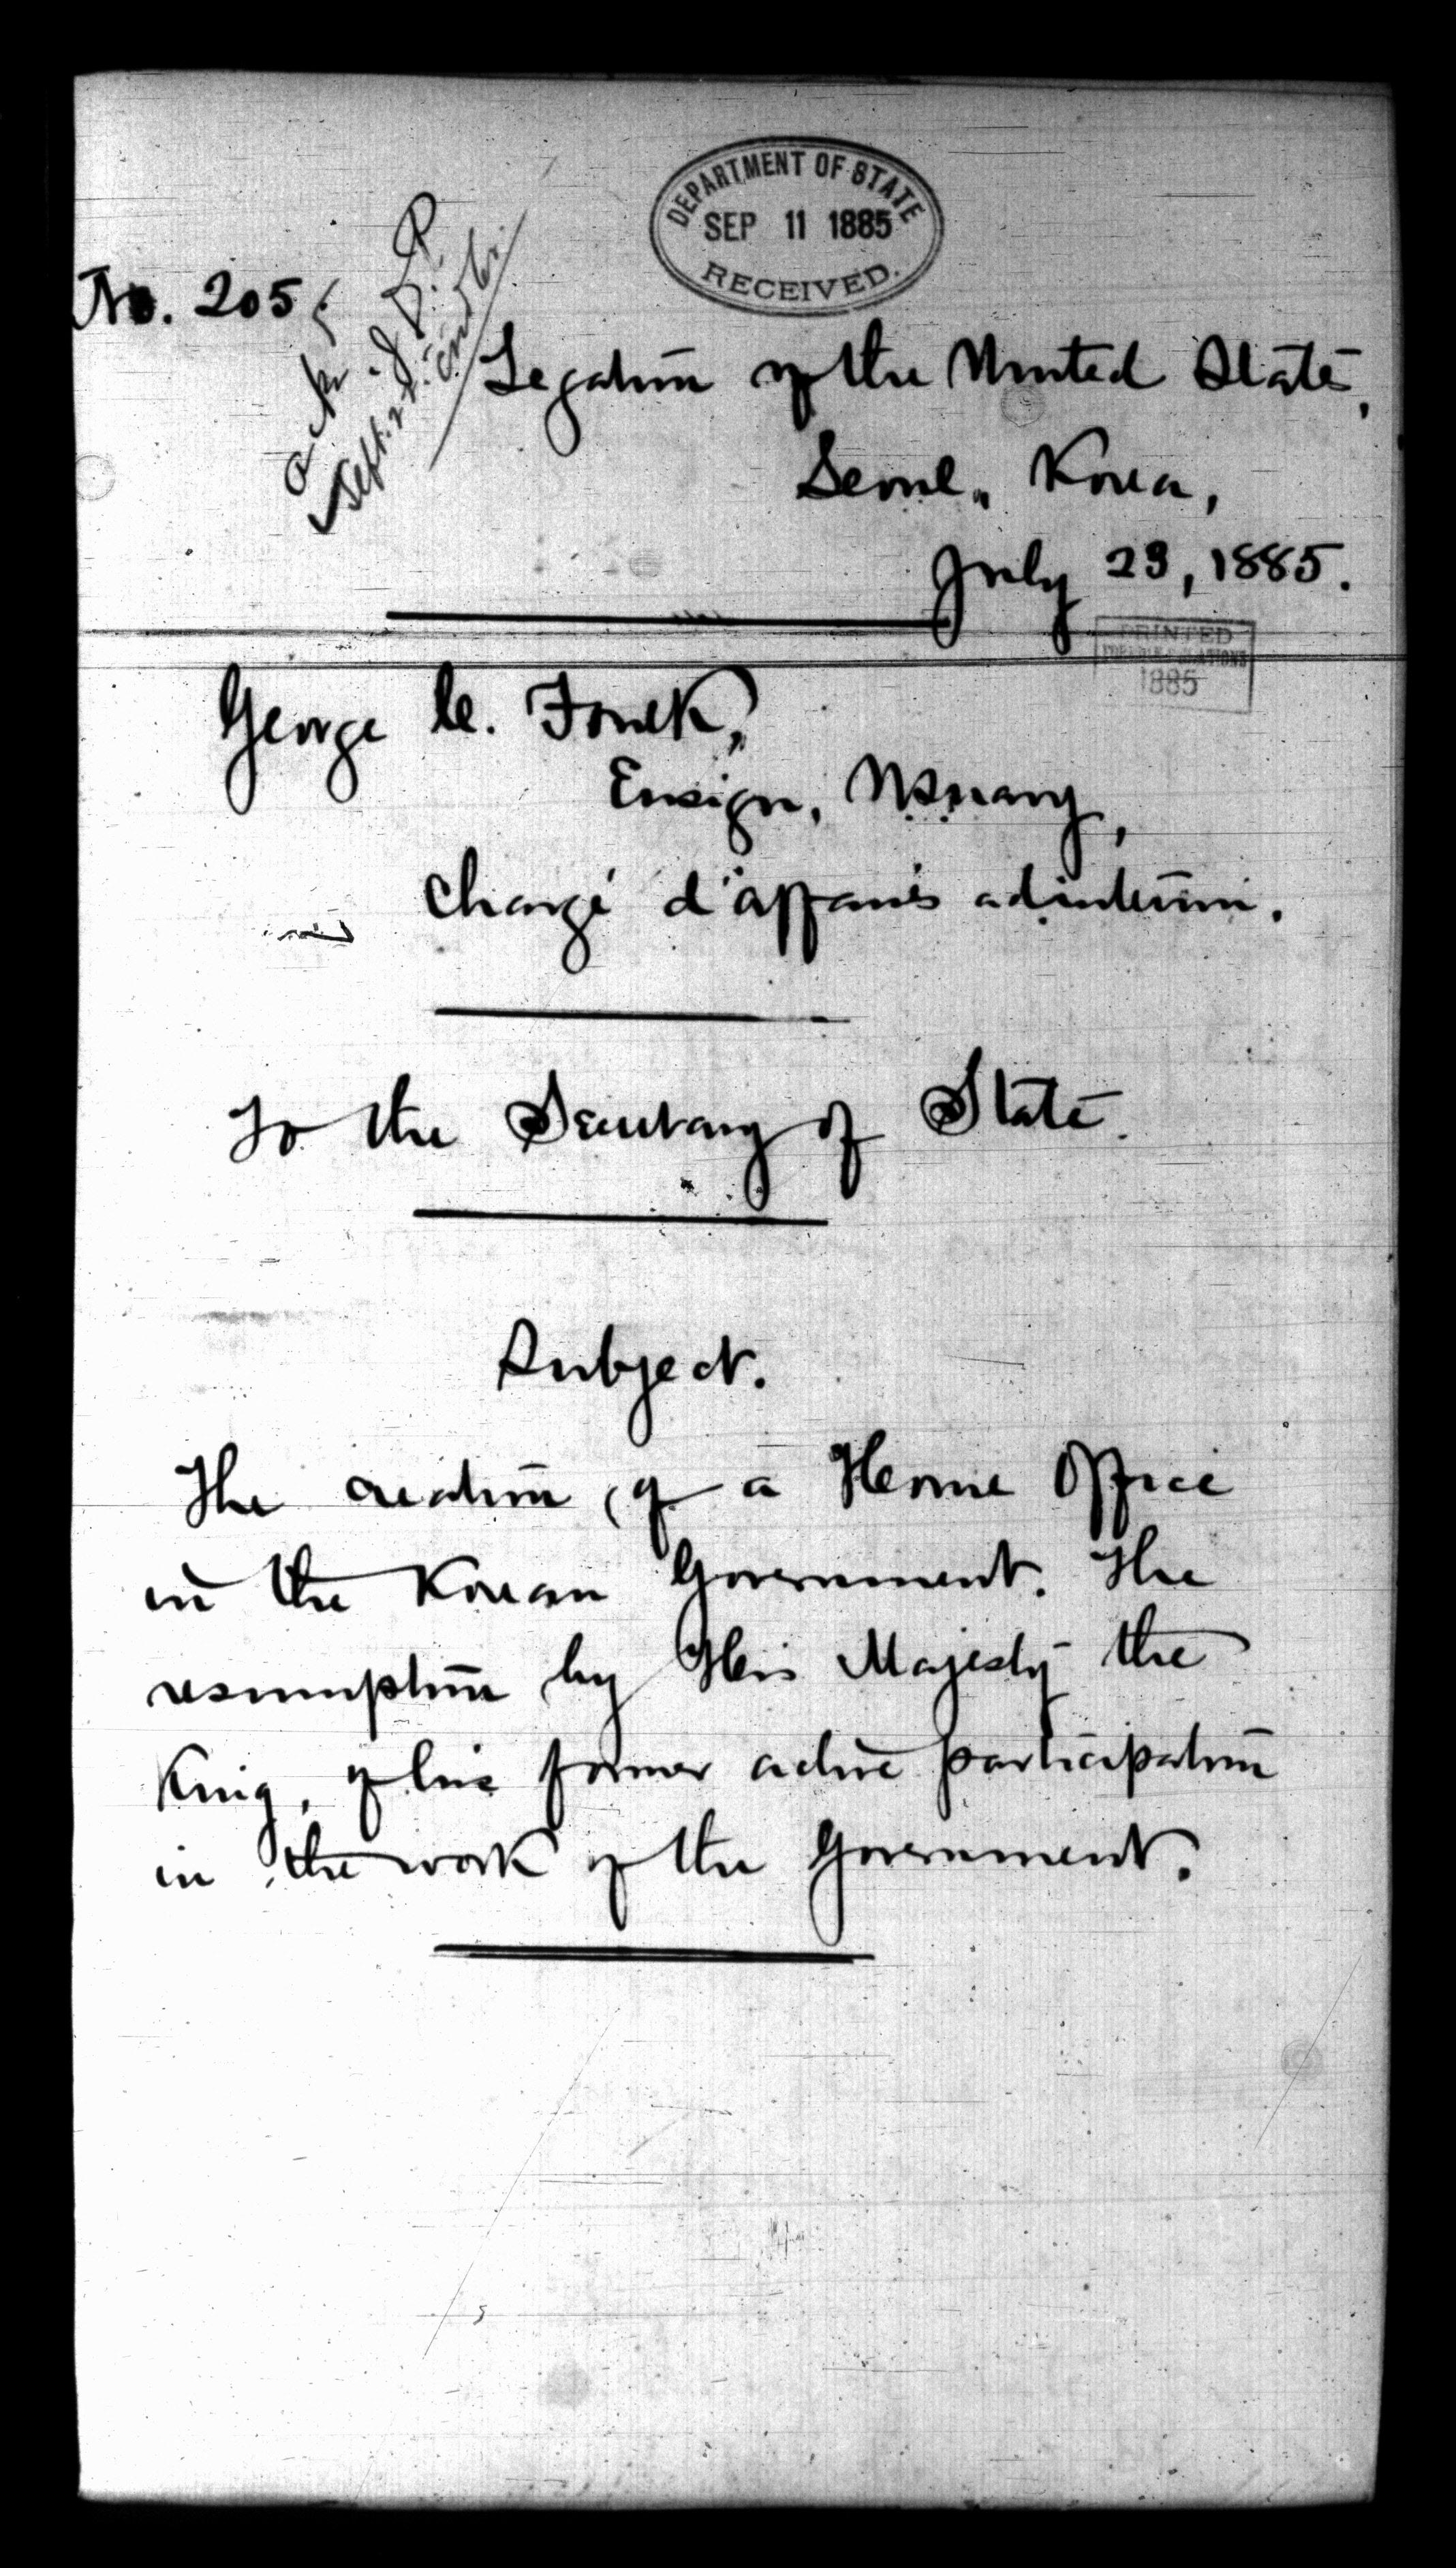 DEPARTMENT OF STATE
SEP 11 1885
RECEIVED.
No. 205
Legation of the United States,
Seoul, Korea,
July 23, 1885.
PRINTED
FOREIGN RELATIONS
1885
George C. Foulk,
Ensign, U.S. Navy,
Chargé d'affaires ad interim.
To the Secretary of State.
Subject.
The creation of a Home Office
in the Korean Government. The
resumption by His Majesty the
King, of his former active participation
in the work of the Government.